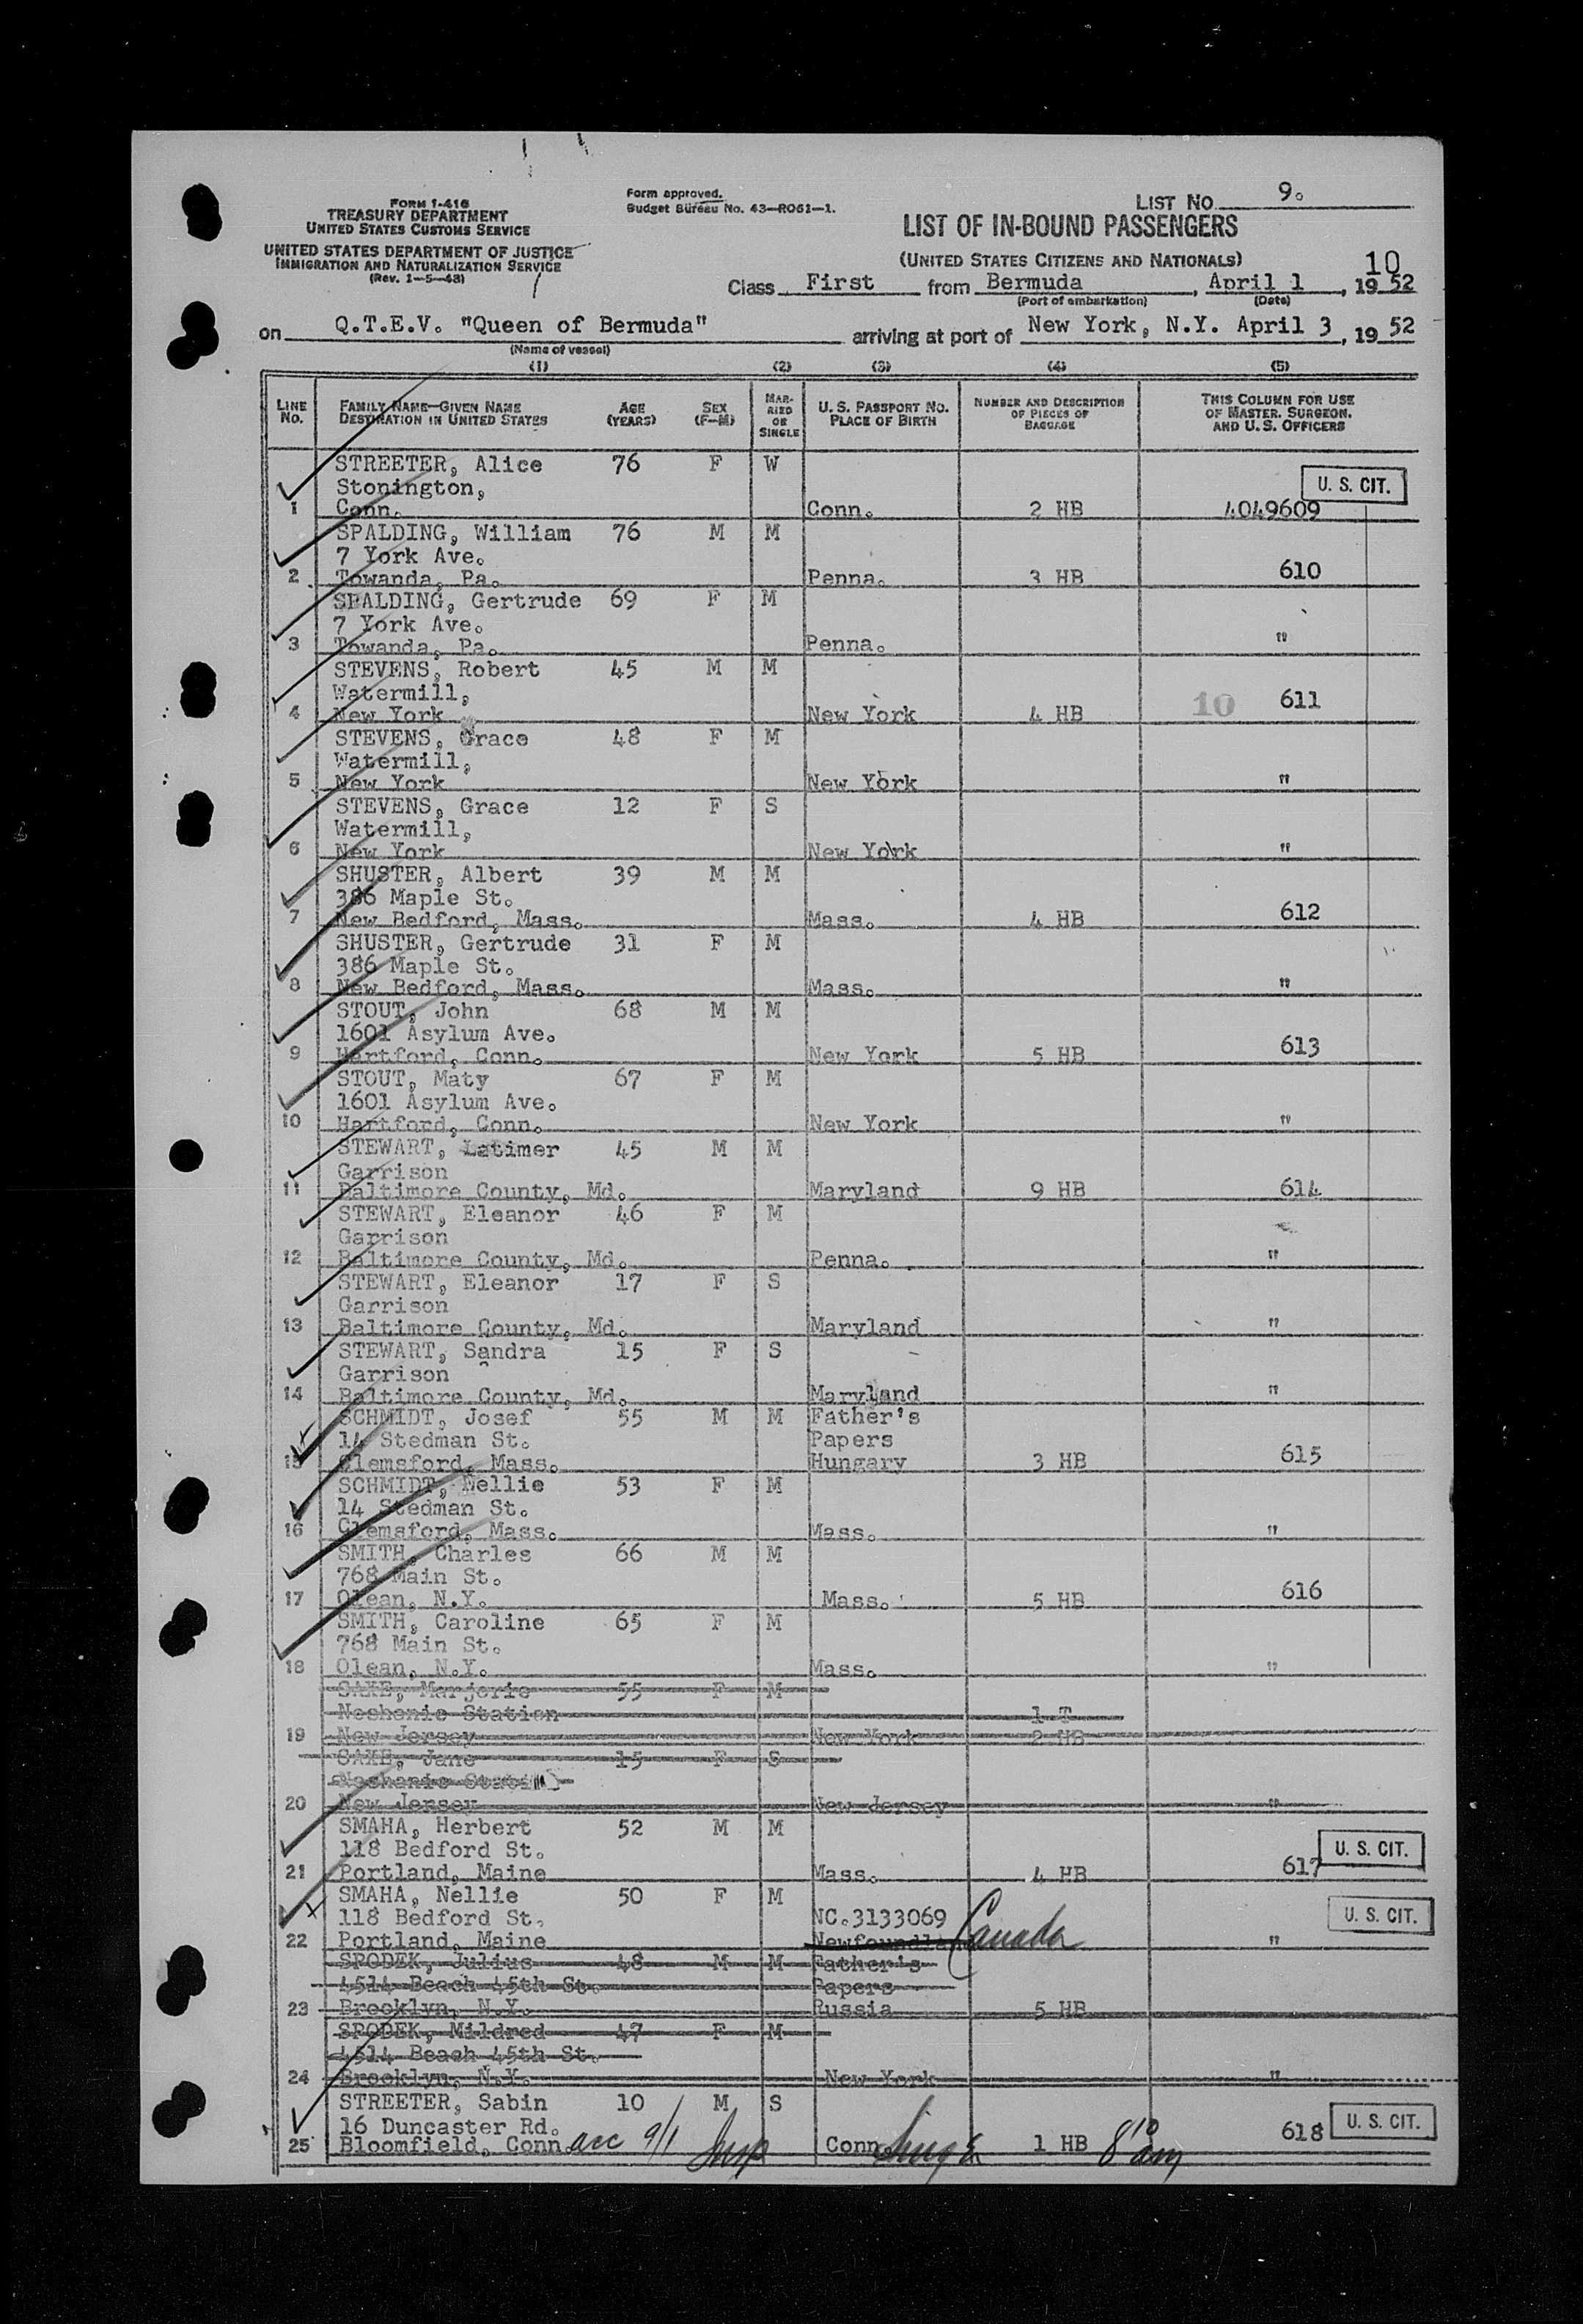 FORM I-416
TREASURY DEPARTMENT
UNITED STATES CUSTOMS SERVICE
UNITED STATES DEPARTMENT OF JUSTICE
IMMIGRATION AND NATURALIZATION SERVICE
(Rev. 1-5-48)
Form approved.
Budget Bureau No. 43-R061-1.
LIST NO. 9.
LIST OF IN-BOUND PASSENGERS
(UNITED STATES CITIZENS AND NATIONALS)
10
Class First from Bermuda, April 1, 1952
(Port of embarkation) (Date)
on Q.T.E.V. "Queen of Bermuda" arriving at port of New York, N.Y. April 3, 1952
(Name of vessel)
(1) (2) (3) (4) (5)
LINE NO. FAMILY NAME—GIVEN NAME DESTINATION IN UNITED STATES AGE (YEARS) SEX (F—M) MARRIED OR SINGLE U.S. PASSPORT NO. PLACE OF BIRTH NUMBER AND DESCRIPTION OF PIECES OF BAGGAGE THIS COLUMN FOR USE OF MASTER, SURGEON, AND U.S. OFFICERS
STREETER, Alice 76 F W
Stonington, U. S. CIT.
1 Conn. Conn. 2 HB 4049609
SPALDING, William 76 M M
7 York Ave.
2 Towanda, Pa. Penna. 3 HB 610
SPALDING, Gertrude 69 F M
7 York Ave.
3 Towanda, Pa. Penna. "
STEVENS, Robert 45 M M
Watermill,
4 New York New York 4 HB 10 611
STEVENS, Grace 48 F M
Watermill,
5 New York New York "
STEVENS, Grace 12 F S
Watermill,
6 New York New York "
SHUSTER, Albert 39 M M
386 Maple St.
7 New Bedford, Mass. Mass. 4 HB 612
SHUSTER, Gertrude 31 F M
386 Maple St.
8 New Bedford, Mass. Mass. "
STOUT, John 68 M M
1601 Asylum Ave.
9 Hartford, Conn. New York 5 HB 613
STOUT, Maty 67 F M
1601 Asylum Ave.
10 Hartford, Conn. New York "
STEWART, Latimer 45 M M
Garrison
11 Baltimore County, Md. Maryland 9 HB 614
STEWART, Eleanor 46 F M
Garrison
12 Baltimore County, Md. Penna. "
STEWART, Eleanor 17 F S
Garrison
13 Baltimore County, Md. Maryland "
STEWART, Sandra 15 F S
Garrison
14 Baltimore County, Md. Maryland "
SCHMIDT, Josef 55 M M Father's
14 Stedman St. Papers
15 Clemsford, Mass. Hungary 3 HB 615
SCHMIDT, Nellie 53 F M
14 Stedman St.
16 Clemsford, Mass. Mass. "
SMITH, Charles 66 M M
768 Main St.
17 Olean, N.Y. Mass. 5 HB 616
SMITH, Caroline 65 F M
768 Main St.
18 Olean, N.Y. Mass. "
SAKE, Marjorie 55 F M
Neshonic Station 1 T
19 New Jersey New York 2 HB
SAKE, Jane 15 F S
Neshanic Stati
20 New Jersey New Jersey "
SMAHA, Herbert 52 M M
118 Bedford St. U. S. CIT.
21 Portland, Maine Mass. 4 HB 617
SMAHA, Nellie 50 F M
118 Bedford St. NC.3133069 U. S. CIT.
22 Portland, Maine Newfoundland Canada "
SPODEK, Julius 48 M M Father's
4514 Beach 45th St. Papers
23 Brooklyn, N.Y. Russia 5 HB
SPODEK, Mildred 47 F M
4514 Beach 45th St.
24 Brooklyn, N.Y. New York "
STREETER, Sabin 10 M S
16 Duncaster Rd. 618 U. S. CIT.
25 Bloomfield, Conn. acc 9/1 Insp Conn. 1 HB 8 10 am